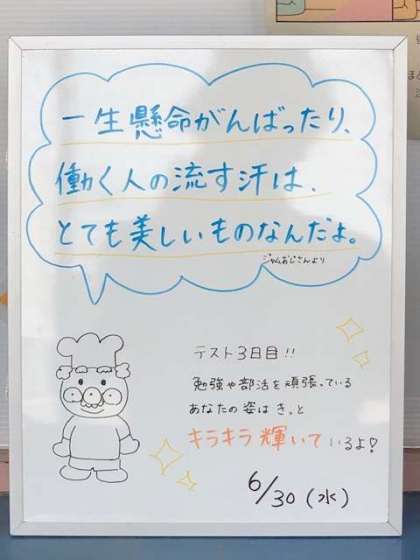 一生懸命がんばったり、
働く人の流す汗は、
とても美しいものなんだよ。
ジャムおじさんより
テスト3日目!!
勉強や部活を頑張っている
あなたの姿はきっと
キラキラ輝いているよ♡
6/30(水)